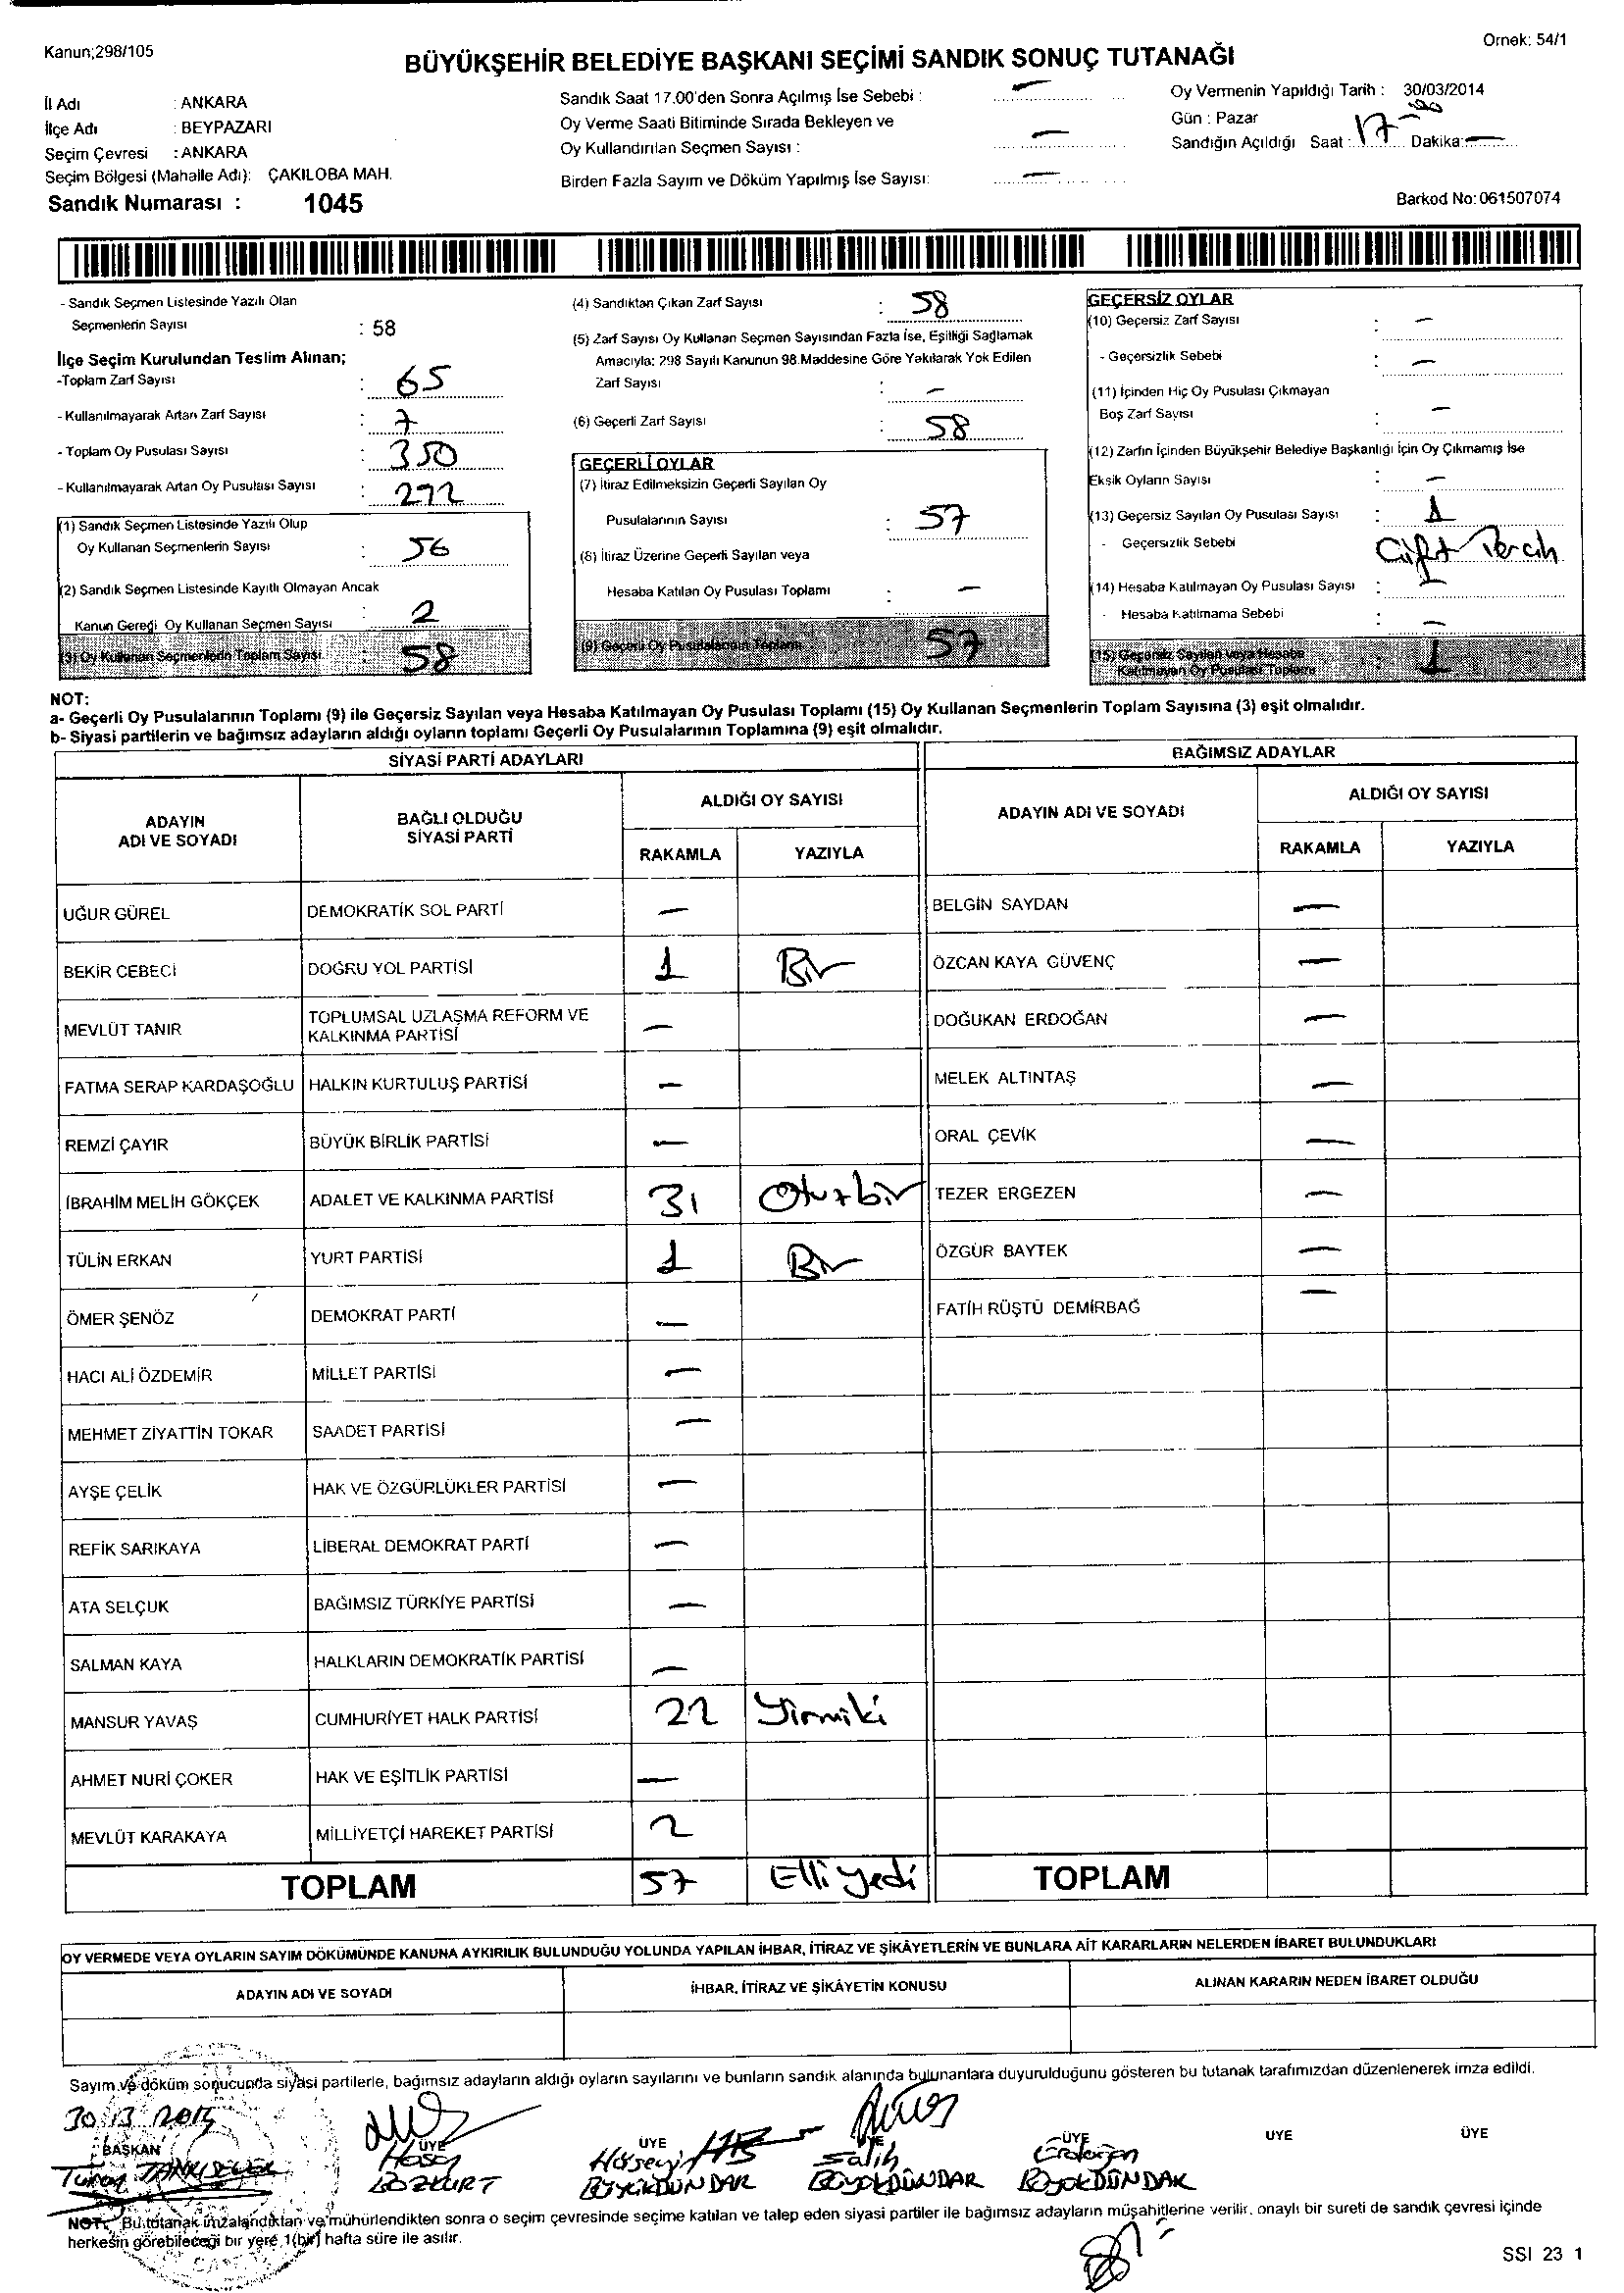 Kanun;298/105
Örnek: 54/1
BÜYÜKŞEHİR BELEDİYE BAŞKANI SEÇİMİ SANDIK SONUÇ TUTANAĞI
İl Adı : ANKARA
İlçe Adı : BEYPAZARI
Seçim Çevresi : ANKARA
Seçim Bölgesi (Mahalle Adı): ÇAKILOBA MAH.
Sandık Numarası : 1045
Sandık Saat 17.00'den Sonra Açılmış İse Sebebi : —
Oy Verme Saati Bitiminde Sırada Bekleyen ve
Oy Kullandırılan Seçmen Sayısı : —
Birden Fazla Sayım ve Döküm Yapılmış İse Sayısı: —
Oy Vermenin Yapıldığı Tarih : 30/03/2014
Gün : Pazar
Sandığın Açıldığı Saat : 17-00 Dakika: —
Barkod No:061507074
- Sandık Seçmen Listesinde Yazılı Olan
Seçmenlerin Sayısı : 58
İlçe Seçim Kurulundan Teslim Alınan;
-Toplam Zarf Sayısı : 65
- Kullanılmayarak Artan Zarf Sayısı : 7
- Toplam Oy Pusulası Sayısı : 350
- Kullanılmayarak Artan Oy Pusulası Sayısı : 292
(1) Sandık Seçmen Listesinde Yazılı Olup
Oy Kullanan Seçmenlerin Sayısı : 56
(2) Sandık Seçmen Listesinde Kayıtlı Olmayan Ancak
Kanun Gereği Oy Kullanan Seçmen Sayısı : 2
(3) Oy Kullanan Seçmenlerin Toplam Sayısı : 58
(4) Sandıktan Çıkan Zarf Sayısı : 58
(5) Zarf Sayısı Oy Kullanan Seçmen Sayısından Fazla İse, Eşitliği Sağlamak
Amacıyla: 298 Sayılı Kanunun 98.Maddesine Göre Yakılarak Yok Edilen
Zarf Sayısı : —
(6) Geçerli Zarf Sayısı : 58
GEÇERLİ OYLAR
(7) İtiraz Edilmeksizin Geçerli Sayılan Oy
Pusulalarının Sayısı : 57
(8) İtiraz Üzerine Geçerli Sayılan veya
Hesaba Katılan Oy Pusulası Toplamı : —
(9) Geçerli Oy Pusulalarının Toplamı 57
GEÇERSİZ OYLAR
(10) Geçersiz Zarf Sayısı : —
- Geçersizlik Sebebi : —
(11) İçinden Hiç Oy Pusulası Çıkmayan
Boş Zarf Sayısı : —
(12) Zarfın İçinden Büyükşehir Belediye Başkanlığı İçin Oy Çıkmamış İse
Eksik Oyların Sayısı : —
(13) Geçersiz Sayılan Oy Pusulası Sayısı : 1
- Geçersizlik Sebebi Çift Tercih
(14) Hesaba Katılmayan Oy Pusulası Sayısı : —
- Hesaba Katılmama Sebebi : —
(15) Geçersiz Sayılan veya Hesaba
Katılmayan Oy Pusulası Toplamı : 1
NOT:
a- Geçerli Oy Pusulalarının Toplamı (9) ile Geçersiz Sayılan veya Hesaba Katılmayan Oy Pusulası Toplamı (15) Oy Kullanan Seçmenlerin Toplam Sayısına (3) eşit olmalıdır.
b- Siyasi partilerin ve bağımsız adayların aldığı oyların toplamı Geçerli Oy Pusulalarının Toplamına (9) eşit olmalıdır.
SİYASİ PARTİ ADAYLARI
ADAYIN
ADI VE SOYADI
BAĞLI OLDUĞU
SİYASİ PARTİ
ALDIĞI OY SAYISI
RAKAMLA YAZIYLA
UĞUR GÜREL DEMOKRATİK SOL PARTİ —
BEKİR CEBECİ DOĞRU YOL PARTİSİ 1 Bir
MEVLÜT TANIR TOPLUMSAL UZLAŞMA REFORM VE
KALKINMA PARTİSİ —
FATMA SERAP KARDAŞOĞLU HALKIN KURTULUŞ PARTİSİ —
REMZİ ÇAYIR BÜYÜK BİRLİK PARTİSİ —
İBRAHİM MELİH GÖKÇEK ADALET VE KALKINMA PARTİSİ 31 Otuzbir
TÜLİN ERKAN YURT PARTİSİ 1 Bir
ÖMER ŞENÖZ DEMOKRAT PARTİ —
HACI ALİ ÖZDEMİR MİLLET PARTİSİ —
MEHMET ZİYATTİN TOKAR SAADET PARTİSİ —
AYŞE ÇELİK HAK VE ÖZGÜRLÜKLER PARTİSİ —
REFİK SARIKAYA LİBERAL DEMOKRAT PARTİ —
ATA SELÇUK BAĞIMSIZ TÜRKİYE PARTİSİ —
SALMAN KAYA HALKLARIN DEMOKRATİK PARTİSİ —
MANSUR YAVAŞ CUMHURİYET HALK PARTİSİ 22 Yirmiki
AHMET NURİ ÇOKER HAK VE EŞİTLİK PARTİSİ —
MEVLÜT KARAKAYA MİLLİYETÇİ HAREKET PARTİSİ 2
TOPLAM 57 Elli yedi
BAĞIMSIZ ADAYLAR
ADAYIN ADI VE SOYADI
ALDIĞI OY SAYISI
RAKAMLA YAZIYLA
BELGİN SAYDAN —
ÖZCAN KAYA GÜVENÇ —
DOĞUKAN ERDOĞAN —
MELEK ALTINTAŞ —
ORAL ÇEVİK —
TEZER ERGEZEN —
ÖZGÜR BAYTEK —
FATİH RÜŞTÜ DEMİRBAĞ —
TOPLAM
OY VERMEDE VEYA OYLARIN SAYIM DÖKÜMÜNDE KANUNA AYKIRILIK BULUNDUĞU YOLUNDA YAPILAN İHBAR, İTİRAZ VE ŞİKÂYETLERİN VE BUNLARA AİT KARARLARIN NELERDEN İBARET BULUNDUKLARI
ADAYIN ADI VE SOYADI
İHBAR, İTİRAZ VE ŞİKÂYETİN KONUSU
ALINAN KARARIN NEDEN İBARET OLDUĞU
Sayım ve döküm sonucunda siyasi partilerle, bağımsız adayların aldığı oyların sayılarını ve bunların sandık alanında bulunanlara duyurulduğunu gösteren bu tutanak tarafımızdan düzenlenerek imza edildi.
BAŞKAN ÜYE ÜYE ÜYE ÜYE ÜYE ÜYE
Hasan Hüseyin Salih Erdoğan
BOZKURT BÜYÜKDÜNDAR BÜYÜKDÜNDAR BÜYÜKDÜNDAR
NOT: Bu tutanak imzalandıktan ve mühürlendikten sonra o seçim çevresinde seçime katılan ve talep eden siyasi partiler ile bağımsız adayların müşahitlerine verilir. onaylı bir sureti de sandık çevresi içinde
herkesin görebileceği bir yere 1(bir) hafta süre ile asılır.
SSI 23 1